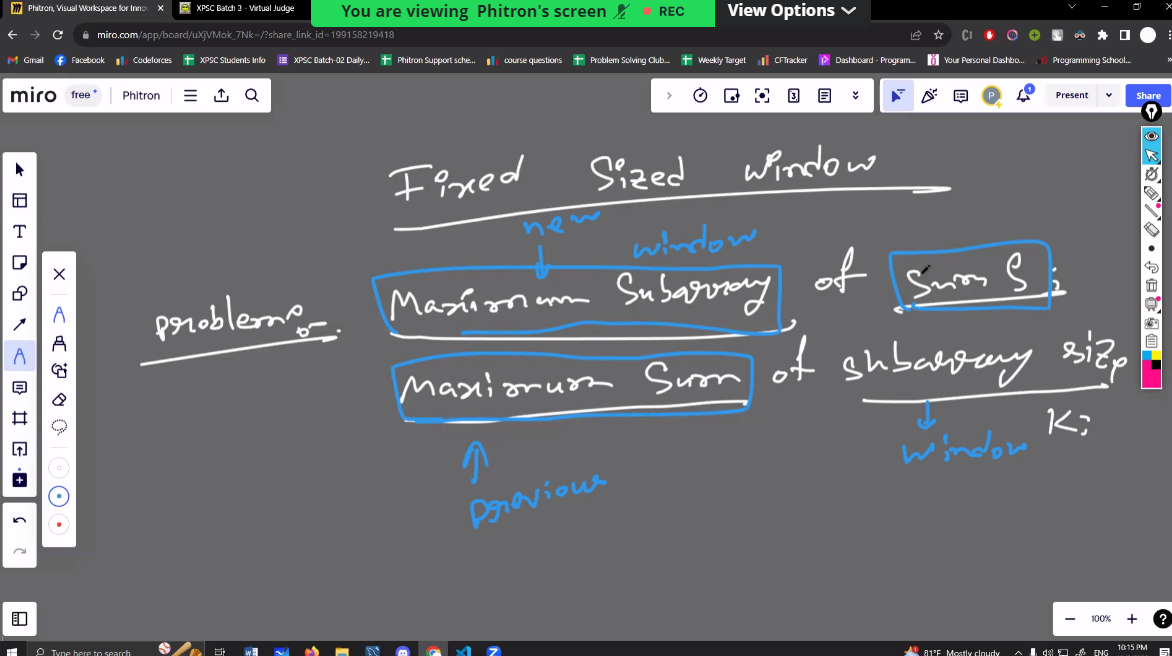 Phitron, Visual Workspace for Innov
XPSC Batch 3 - Virtual Judge
You are viewing Phitron's screen
REC
View Options
miro.com/app/board/uXjVMok_7Nk=/?share_link_id=199158219418
Gmail
Facebook
Codeforces
XPSC Students Info
XPSC Batch-02 Daily...
Phitron Support sche...
course questions
Problem Solving Club...
Weekly Target
CFTracker
Dashboard - Program...
Your Personal Dashbo...
Programming School...
miro
free
Phitron
3
P
1
Present
Share
Fixed Sized window
new
window
Maximum Subarray, of Sum S;
problems:-
Maximum Sum of subarray size
K;
window
previous
100%
Type here to search
81°F Mostly cloudy
ENG
10:15 PM